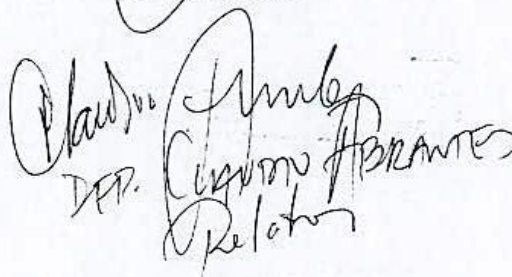 Claudio
DEP. CLAUDIO ABRANTES
Relator